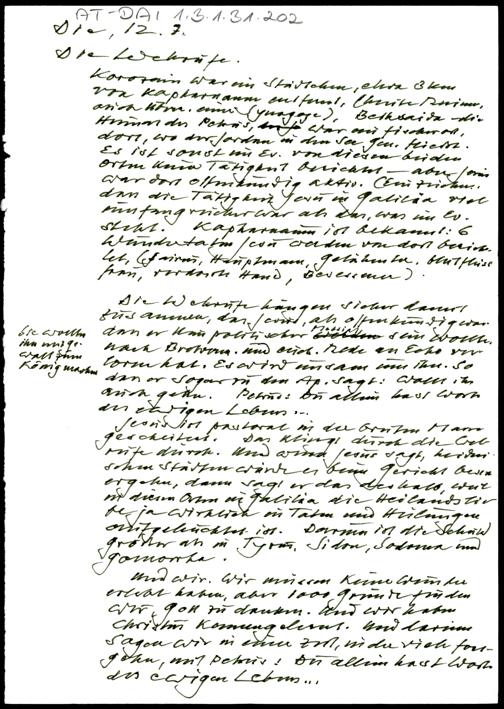 AT-DAI 1.3.1.31.202
Die, 12.7.
Die Wehrufe.
Korozain war ein Städtchen, etwa 3 km
von Kapharnaum entfernt, (heute Ruinen,
auch Ruine einer Synagoge), Bethsaida - die
Heimat des Petrus, war ein Fischerort,
dort, wo der Jordan in den See Gen. fliesst.
Es ist sonst im Ev. von diesen beiden
Orten keine Tätigkeit berichtet - aber Jesus
war dort offenkundig aktiv. (Ein Zeichen,
dass die Tätigkeit Jesu in Galiläa viel
umfangreicher war als das, was im Ev.
steht. Kapharnaum ist bekannt: 6
Wundertaten Jesu werden von dort berich-
tet, (Jairus, Hauptmann, Gelähmter, blutflüss
frau, verdorrte Hand, Besessener).
Die Wehrufe hängen sicher damit
zusammen, dass Jesus, als offenkundig war
dass er kein politischer Messias sein wollte
nach Brotverm. und euch. Rede an Echo ver
loren hat. Es wird einsam um ihn. So
dass er sogar zu den Ap. sagt: Wollt ihr
auch gehn. Petrus: Du allein hast Worte
des ewigen Lebens...
Sie wollten
ihn mit Ge-
walt zum
König machen
Jesus ist pastoral in der breiten Masse
gescheitert. Das klingt durch die Weh
rufe durch. Und wenn Jesus sagt, heidni-
schen Städten würde es beim Gericht besser
ergehn, dann sagt er das deshalb, weil
in diesen Orten in Galiläa die Heilandslie
be ja wirklich in Taten und Heilungen
aufgeleuchtet ist. Darum ist die Schuld
größer als in Tyrus, Sidon, Sodoma und
Gomorrha.
Und wir. Wir müssen keine Wunder
erlebt haben, aber 1000 Gründe finden
wir, Gott zu danken. Und wir haben
Christus kennengelernt. Und darum
sagen wir in einer Zeit, in der viele fort-
gehn, mit Petrus: Du allein hast Worte
des ewigen Lebens...